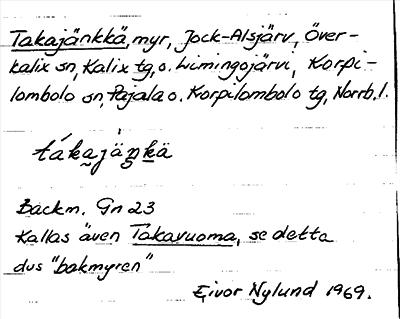 Takajänkkä, myr, Jock-Alsjärv, Över-
kalix sn, Kalix tg, o. Limingojärvi, Korpi-
lombolo sn, Pajala o. Korpilombolo tg, Norrb. l.
tákajäŋkä
Backm. Gn 23
Kallas även Takavuoma, se detta
dvs "bakmyren"
Eivor Nylund 1969.